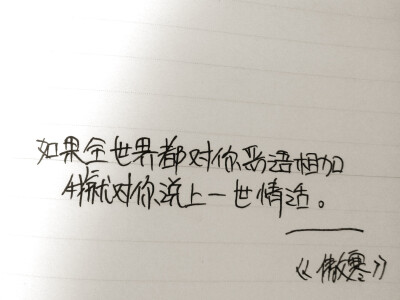 如果全世界都对你恶语相加
我就对你说上一世情话。
——
《傲寒》